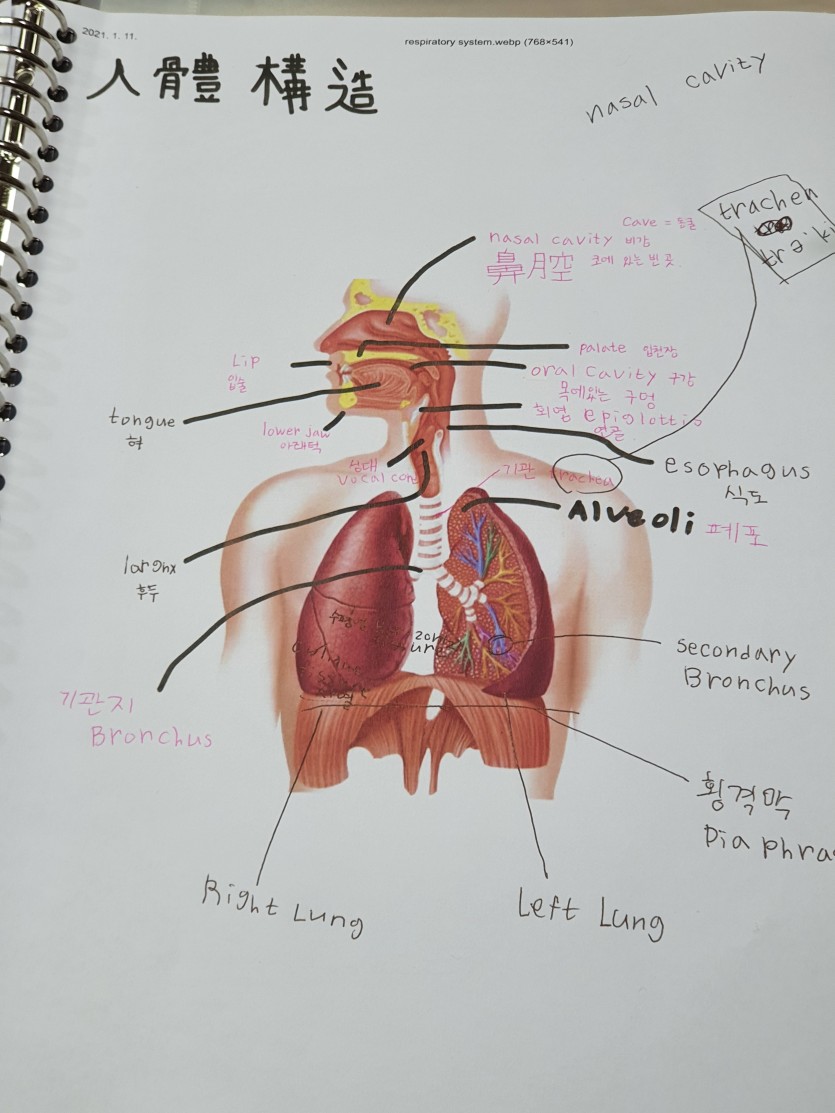 2021. 1. 11.
respiratory system.webp (768×541)
人體 構造
nasal cavity
trachen
Cave = 동굴
nasal cavity 비강
鼻腔 코에 있는 빈 곳
palate 입천장
Lip
입술
oral cavity 구강
목에있는 구멍
회염 epiglottis
연골
tongue
혀
lower jaw
아래턱
성대
vocal cord
기관 trachea
esophagus
식도
Alveoli 폐포
후두
secondary
Bronchus
기관지
Bronchus
횡격막
Diaphra
Right Lung
Left Lung